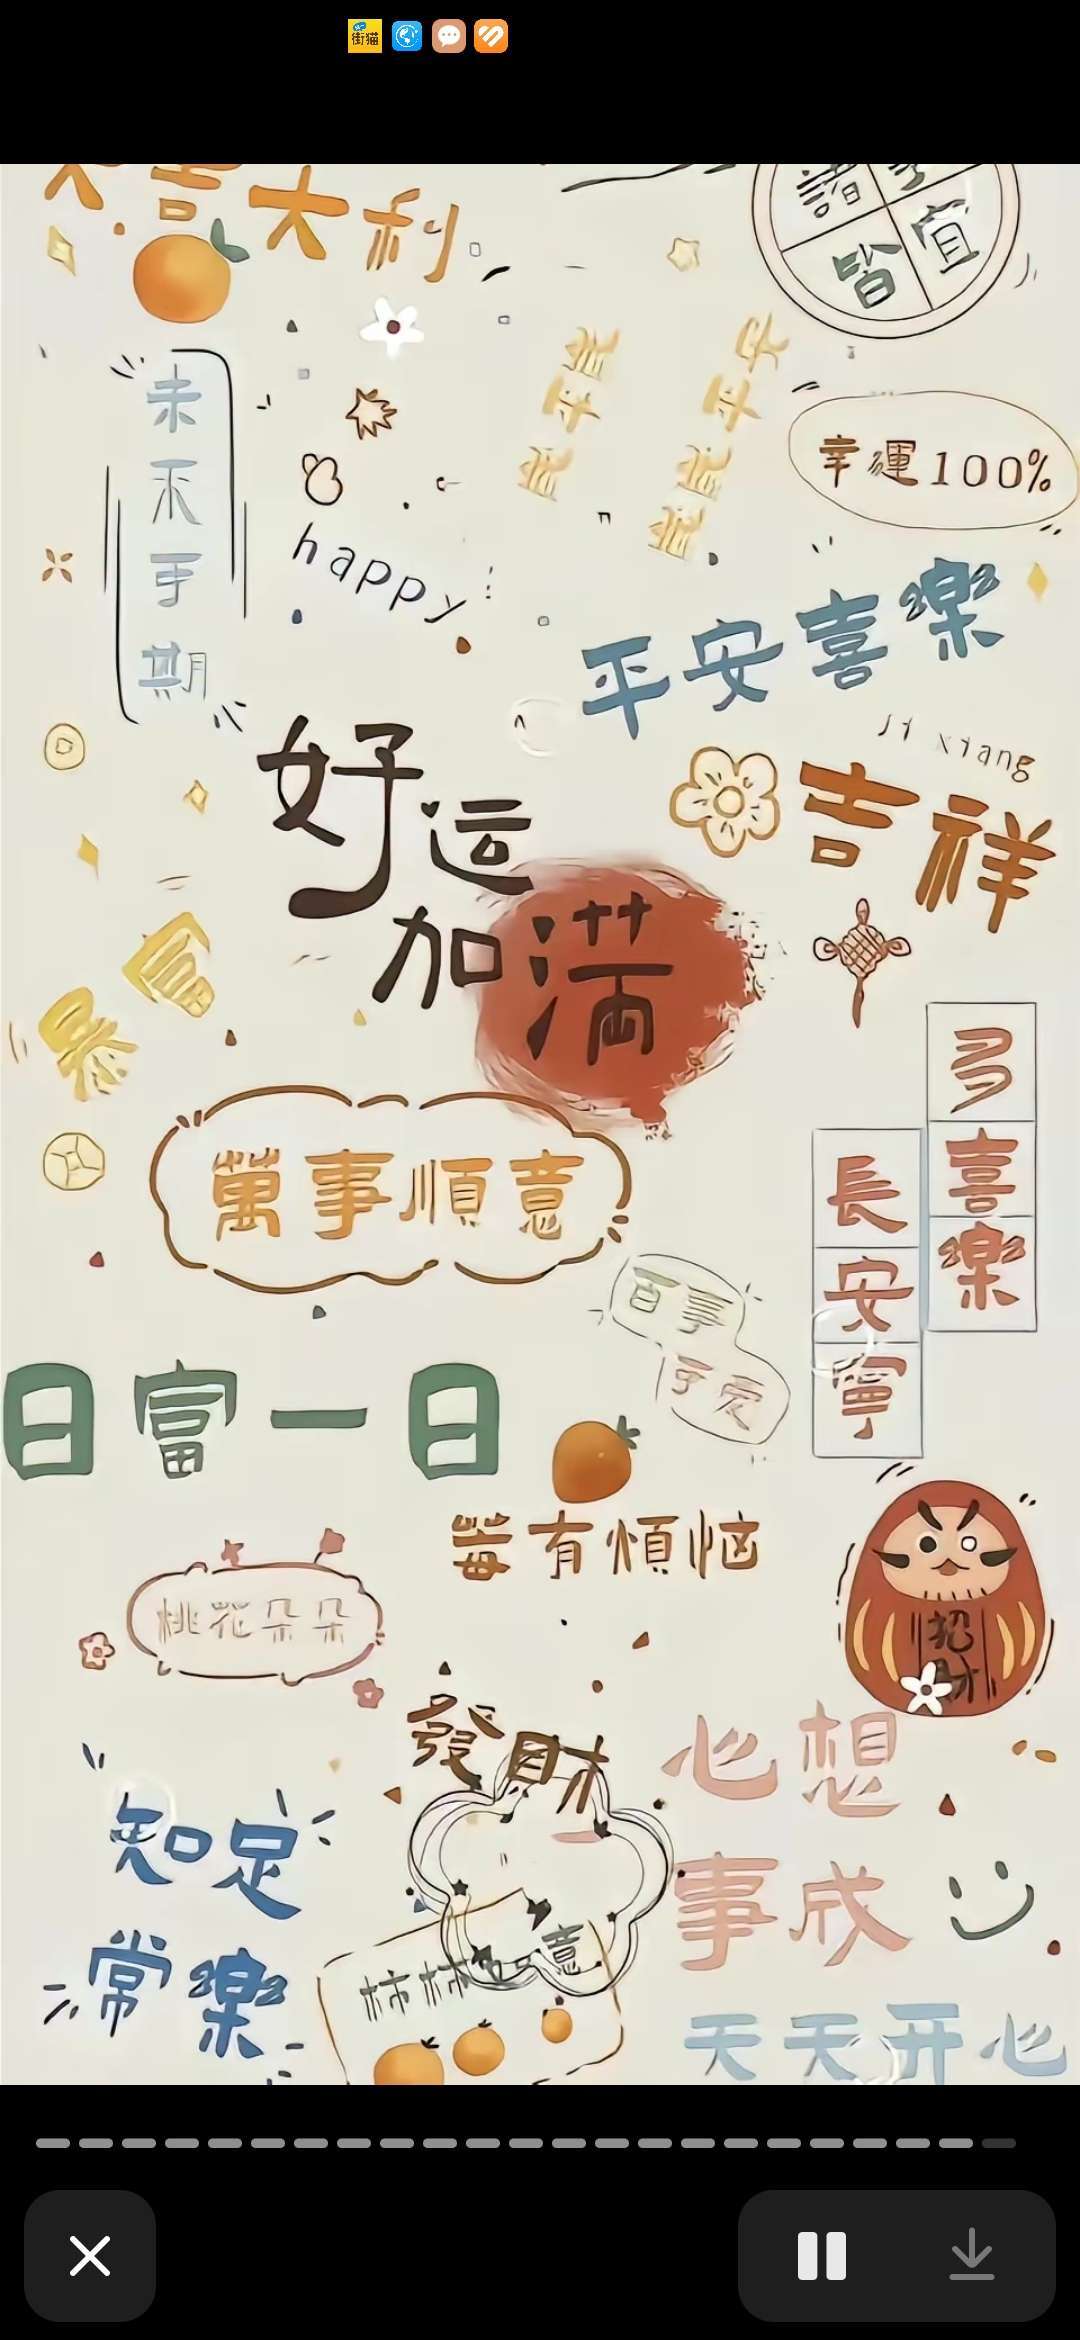 街猫
大吉大利
諸事
皆宜
歲平安
歲歲平安
幸運100%
未来可期
happy
平安喜樂
ji xiang
吉祥
好运
加满
暴富
多喜樂
長安寧
萬事順意
百事
可爱
日富一日
莓有煩恼
桃花朵朵
招財
發財
心想
事成
知足
常樂
柿柿如意
天天开心